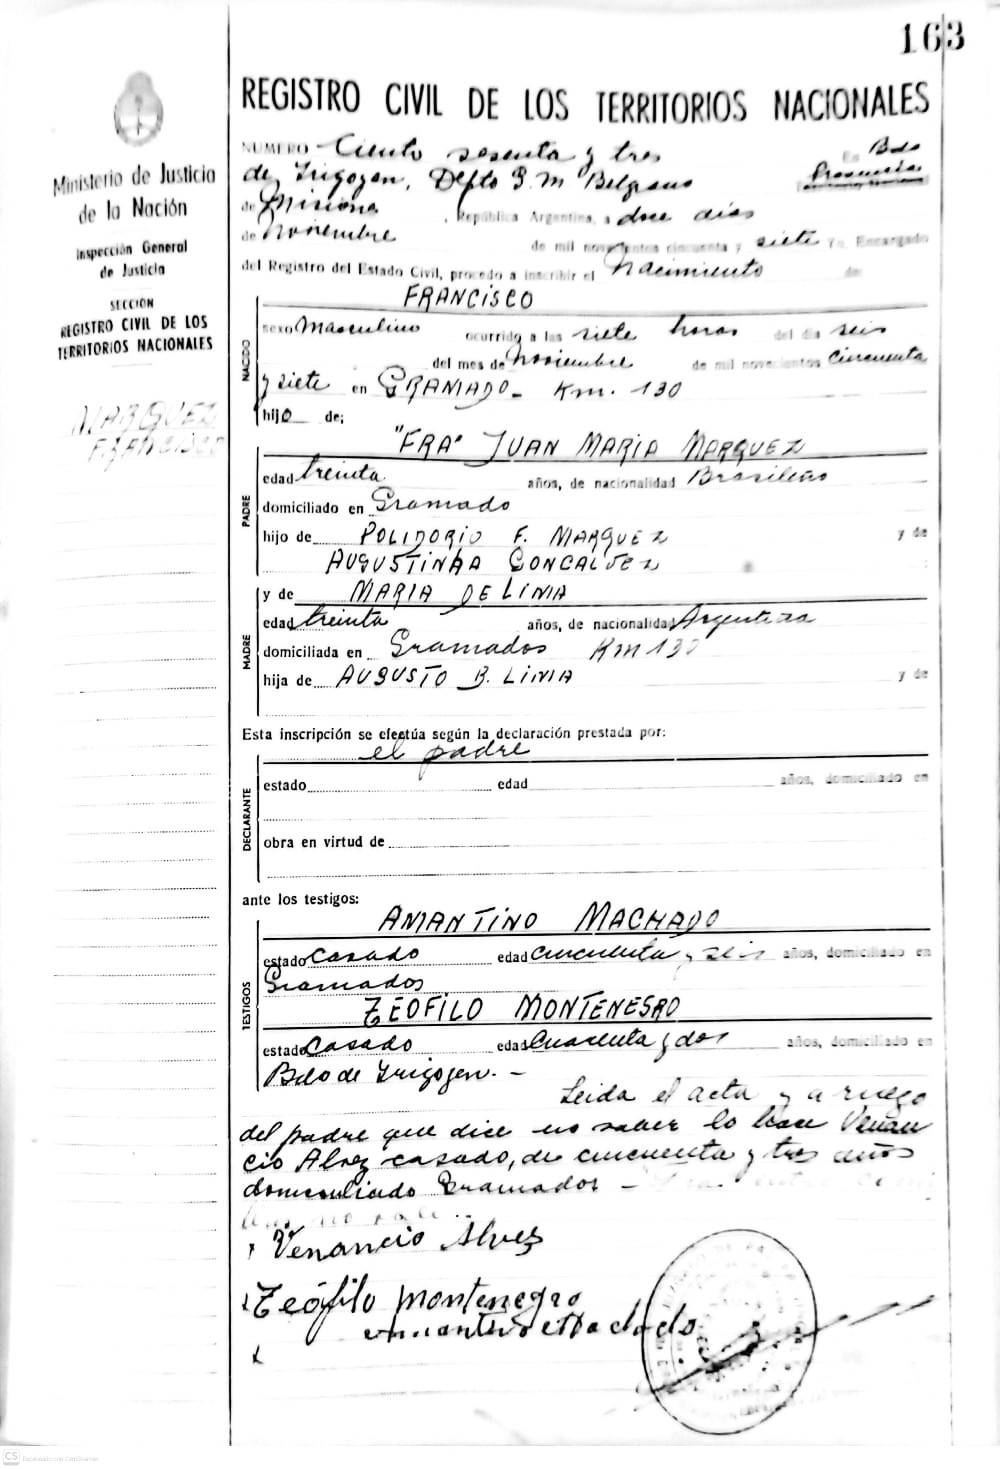 163
Ministerio de Justicia
de la Nación
Inspección General
de Justicia
SECCION
REGISTRO CIVIL DE LOS
TERRITORIOS NACIONALES
MARQUEZ
FRANCISCO
REGISTRO CIVIL DE LOS TERRITORIOS NACIONALES
NUMERO Ciento sesenta y tres En Bdo
de Irigoyen, Depto G. M. Belgrano Provincia
de Misiones, República Argentina, a doce dias
de Noviembre de mil novecientos cincuenta y siete Yo, Encargado
del Registro del Estado Civil, procedo a inscribir el Nacimiento de
FRANCISCO
NACIDO
sexo Masculino ocurrido a las siete horas del día seis
del mes de Noviembre de mil novecientos cincuenta
y siete en GRAMADO - Km. 130
hijo de;
PADRE
"FRA" JUAN MARIA MARQUEZ
edad treinta años, de nacionalidad Brasileño
domiciliado en Gramado
hijo de POLIDORIO F. MARQUEZ y de
AUGUSTINHA GONCALVEZ
MADRE
y de MARIA DE LINIA
edad treinta años, de nacionalidad Argentina
domiciliada en Gramados Km 130
hija de AUGUSTO B. LINIA y de
Esta inscripción se efectúa según la declaración prestada por:
el padre
DECLARANTE
estado edad años, domiciliado en
obra en virtud de
ante los testigos:
TESTIGOS
AMANTINO MACHADO
estado Casado edad cincuenta y seis años, domiciliado en
Gramados
TEOFILO MONTENEGRO
estado Casado edad Cuarenta y dos años, domiciliado en
Bdo de Irigoyen. -
Leida el acta y a ruego
del padre que dice no saber lo hace Venan
cio Alvez casado, de cincuenta y tres años
domiciliado Gramados -
Venancio Alvez
Teófilo Montenegro
Amantino Machado
CS Escaneado con CamScanner